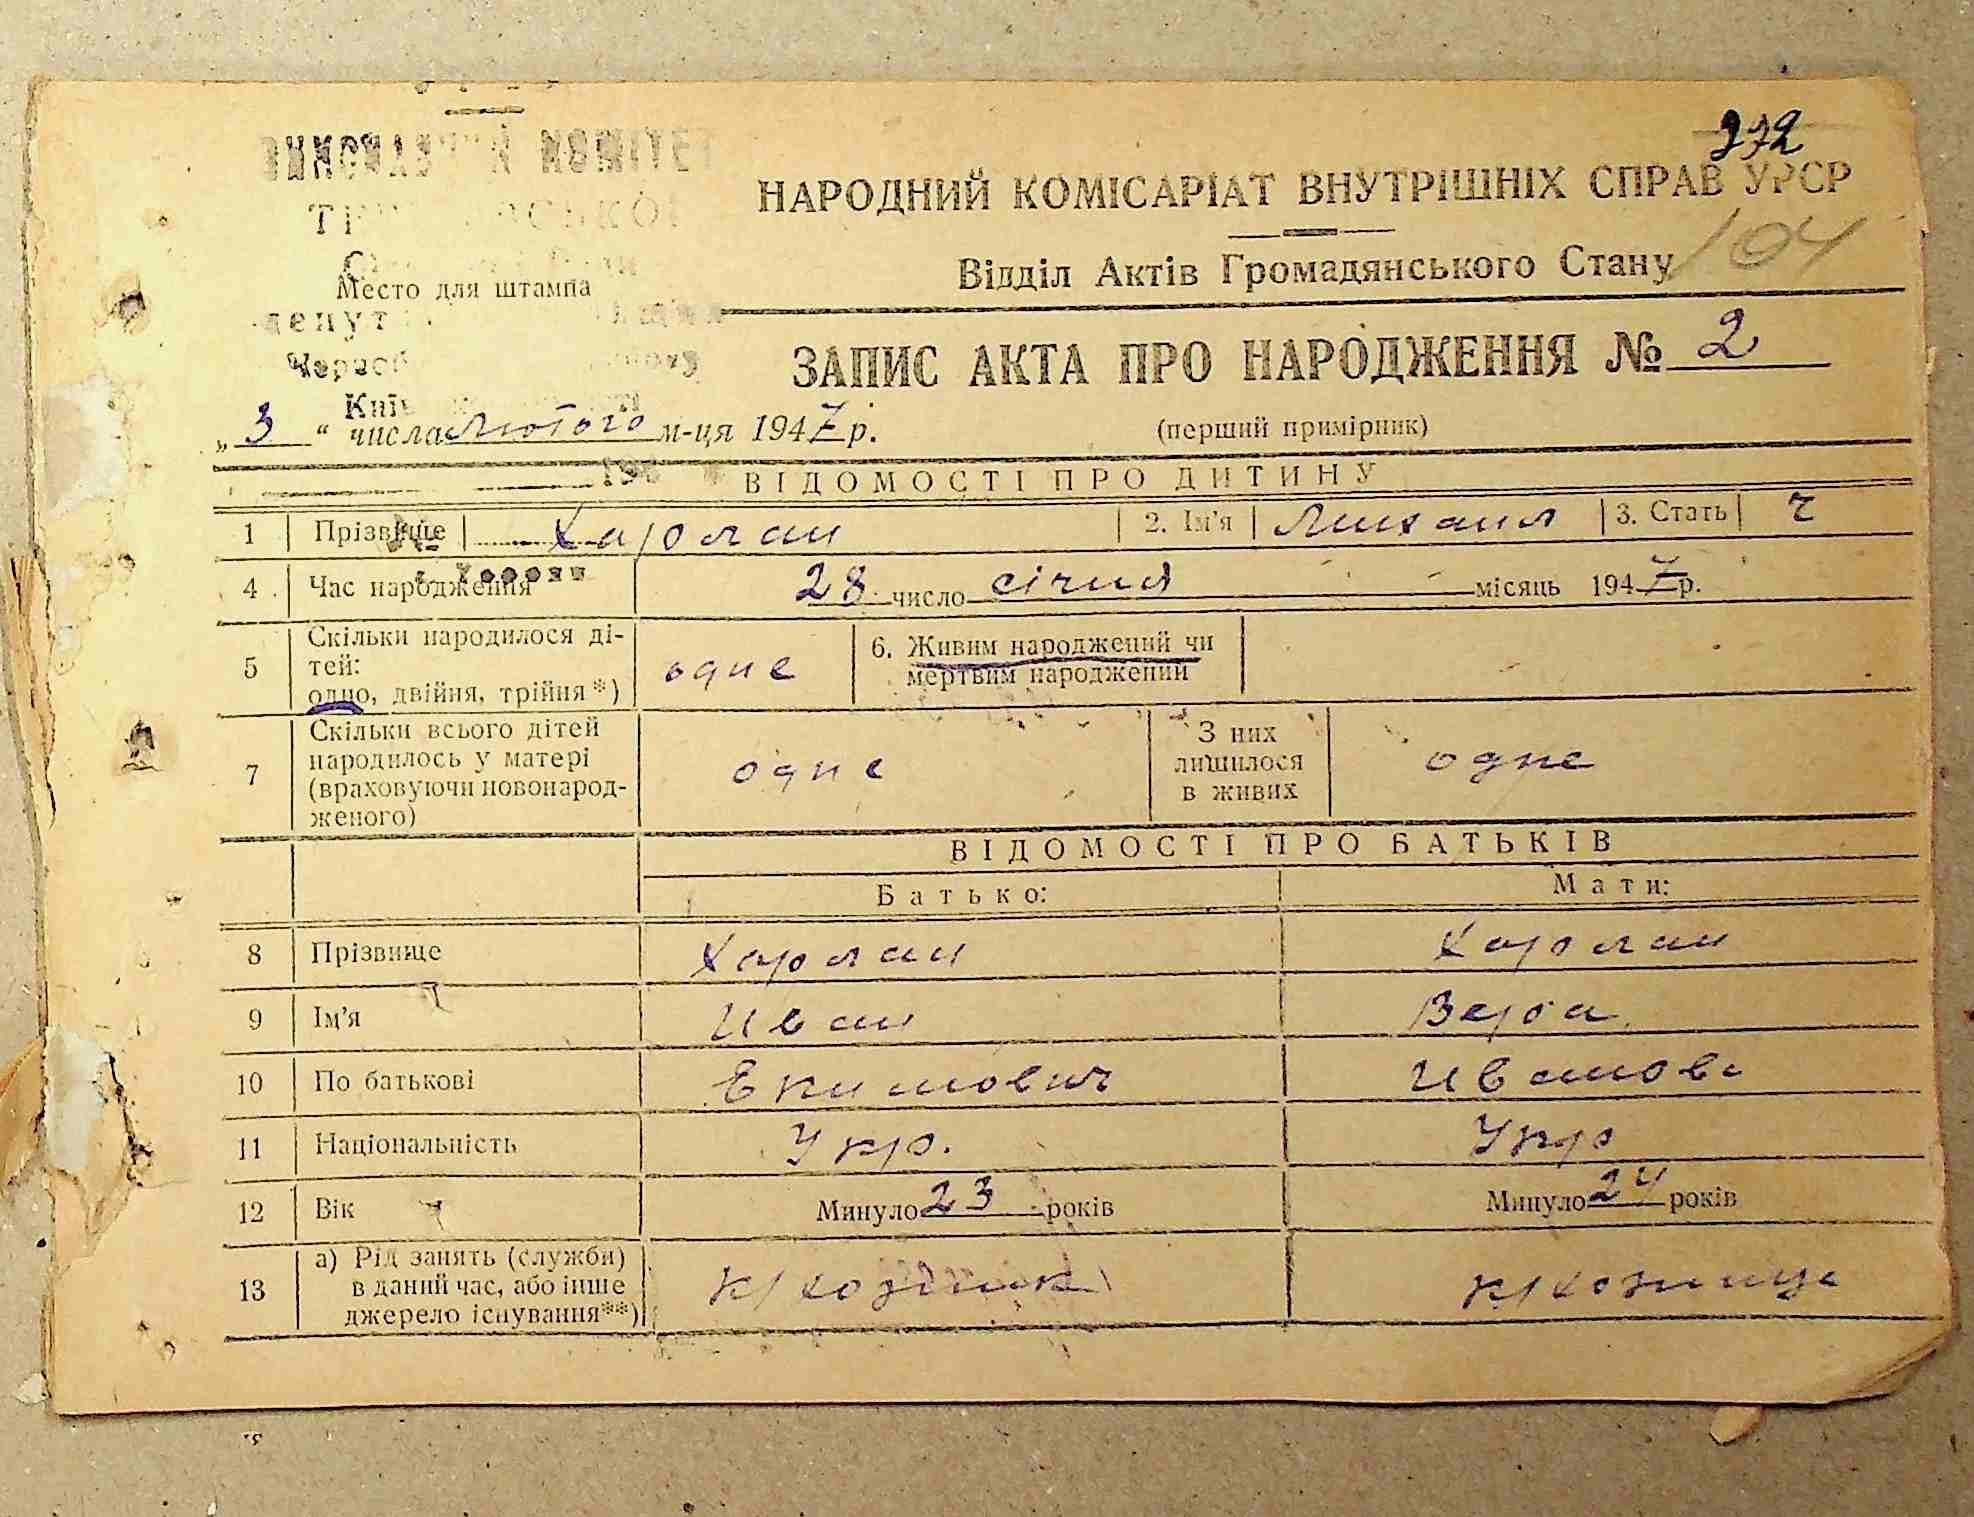 272
ВИКОНАВЧИЙ КОМІТЕТ
НАРОДНИЙ КОМІСАРІАТ ВНУТРІШНІХ СПРАВ УРСР
104
Відділ Актів Громадянського Стану
Место для штампа
ЗАПИС АКТА ПРО НАРОДЖЕННЯ № 2
„3“ числа лютого м-ця 1947 р.
(перший примірник)
ВІДОМОСТІ ПРО ДИТИНУ
1 Прізвище Харлан 2. Ім'я Михаил 3. Стать ч
4 Час народження 28 число січня місяць 1947 р.
5 Скільки народилося ді-
тей:
одно, двійня, трійня*) одне
6. Живим народжений чи
мертвим народжений
7 Скільки всього дітей
народилось у матері
(враховуючи новонарод-
женого) одне
З них
лишилося
в живих одне
ВІДОМОСТІ ПРО БАТЬКІВ
Батько: Мати:
8 Прізвище Харлан Харлан
9 Ім'я Иван Вера
10 По батькові Екимович Иванов
11 Національність Укр. Укр
12 Вік Минуло 23 років Минуло 24 років
13 а) Рід занять (служби)
в даний час, або інше
джерело існування**) к/хозник к/хозниця